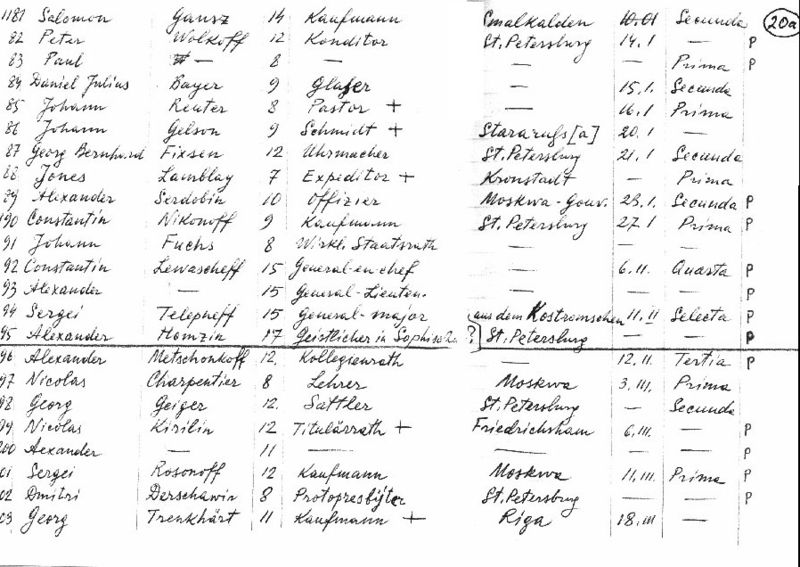 1181 Salomon Gansz 14 Kaufmann Smalkalden 10.01 Secunda 20a
82 Peter Wolkoff 12 Konditor St. Petersburg 14.1 — P
83 Paul — 8 — — Prima P
84 Daniel Julius Bayer 9 Glaser — 15.1. Secunda
85 Johann Reuter 8 Pastor + — 16.1 Prima
86 Johann Gelson 9 Schmidt + Stararuss[a] 20.1 —
87 Georg Bernhard Fixsen 12 Uhrmacher St. Petersburg 21.1 Secunda
88 Jones Lamblay 7 Expeditor + Kronstadt — Prima
89 Alexander Serdobin 10 Offizier Moskwa-Gouv. 23.1. Secunda P
190 Constantin Nikonoff 9 Kaufmann St. Petersburg 27.1 Prima P
91 Johann Fuchs 8 Wirkl. Staatsrath — — —
92 Constantin Lewascheff 15 General-en-chef — 6.II. Quarta P
93 Alexander — 15 General-Lieuten. — P
94 Sergei Telepneff 15 General-major aus dem Kostromschen 11.II Selecta P
95 Alexander Homzin 17 Geistlicher in ? St. Petersburg — — P
96 Alexander Metschonkoff 12. Kollegienrath — 12.II. Tertia P
97 Nicolas Charpentier 8 Lehrer Moskwa 3.III. Prima
98 Georg Geiger 12. Sattler St. Petersburg — Secunda
99. Nicolas Kirilin 12 Titulärrath + Friedrichsham 6.III. — P
200 Aexander — 11 — — P
01 Sergei Rosonoff 12 Kaufmann Moskwa 11.III. Prima P
02 Dmitri Derschawin 8 Protopresbyter St. Petersburg — — P
03 Georg Trenkhärt 11 Kaufmann + Riga 18.III —